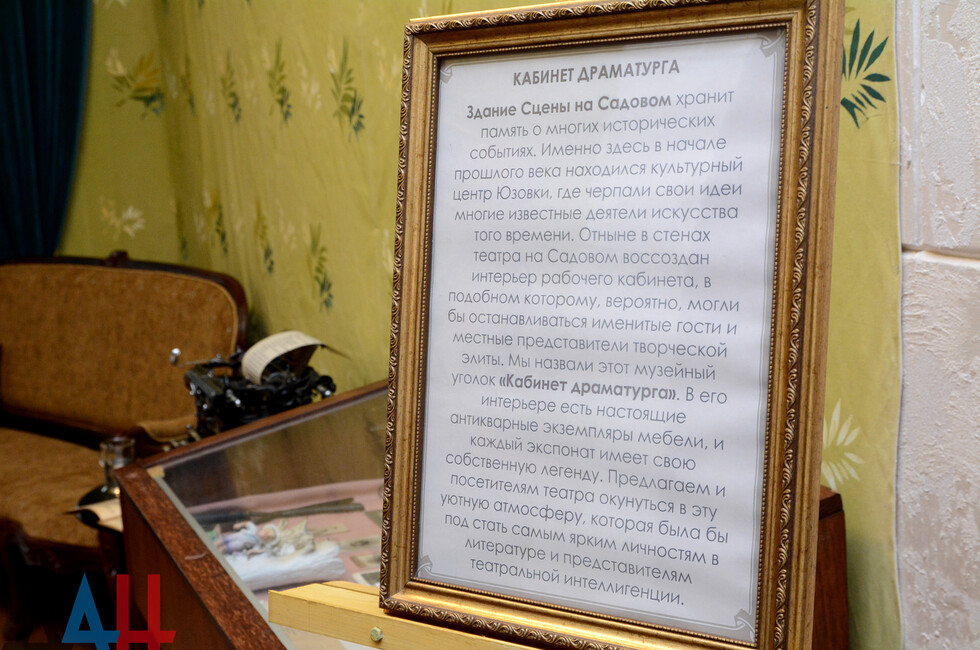 КАБИНЕТ ДРАМАТУРГА
Здание Сцены на Садовом хранит
память о многих исторических
событиях. Именно здесь в начале
прошлого века находился культурный
центр Юзовки, где черпали свои идеи
многие известные деятели искусства
того времени. Отныне в стенах
театра на Садовом воссоздан
интерьер рабочего кабинета, в
подобном которому, вероятно, могли
бы останавливаться именитые гости и
местные представители творческой
элиты. Мы назвали этот музейный
уголок «Кабинет драматурга». В его
интерьере есть настоящие
антикварные экземпляры мебели, и
каждый экспонат имеет свою
собственную легенду. Предлагаем и
посетителям театра окунуться в эту
уютную атмосферу, которая была бы
под стать самым ярким личностям в
литературе и представителям
театральной интеллигенции.
ДАН